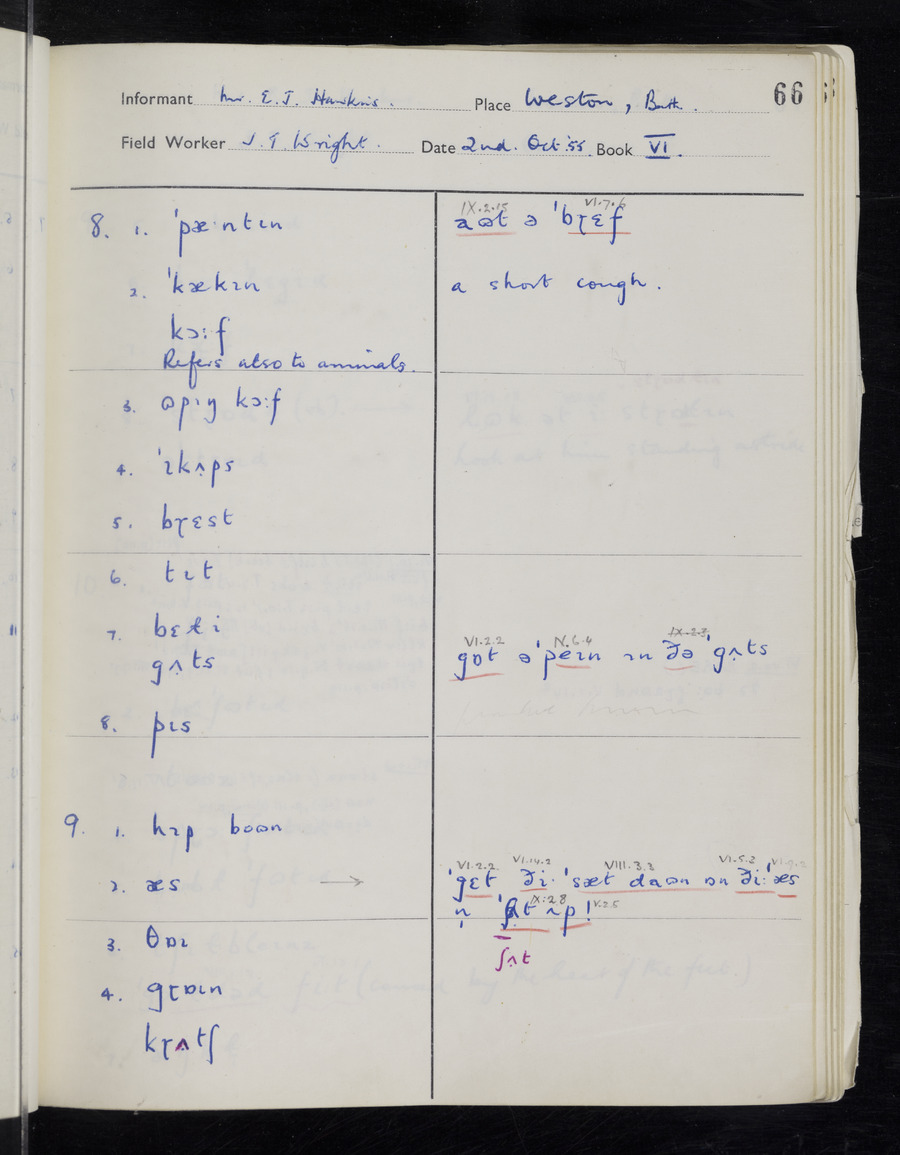 Informant Mr. E. J. Hawkins. Place Weston, Bath. 66
Field Worker J. T. Wright. Date 2nd. Oct '55 Book VI.
8. 1. ˈpæ·ntɪn
IX.2.15 VI.7.6
aʊt ə ˈbɽɛf
2. ˈkækɪn
a short cough.
kɔ:f
Refers also to animals.
3. ʊpɪŋ kɔ:f
4. ˈɪkʌps
5. bɽɛst
6. tɪt
7. bɛɫi
gʌts
VI.2.2 IV.6.4 IX.2.3
gɒt ə ˈpeɪn ɪn ðə ˈgʌts
8. pɪs
9. 1. hɪp boʊn
2. æs →
VI.2.2 VI.14.2 VIII.3.3 VI.5.3 VI.9.2
ˈgɛt ði· ˈsæt daʊn ɒn ði: ˈæs
IX.2.8 V.2.5
n̩ ˈʃʌt ʌp!
ʃʌt
3. θɒɪ
4. gɽɒɪn
kɽʌtʃ